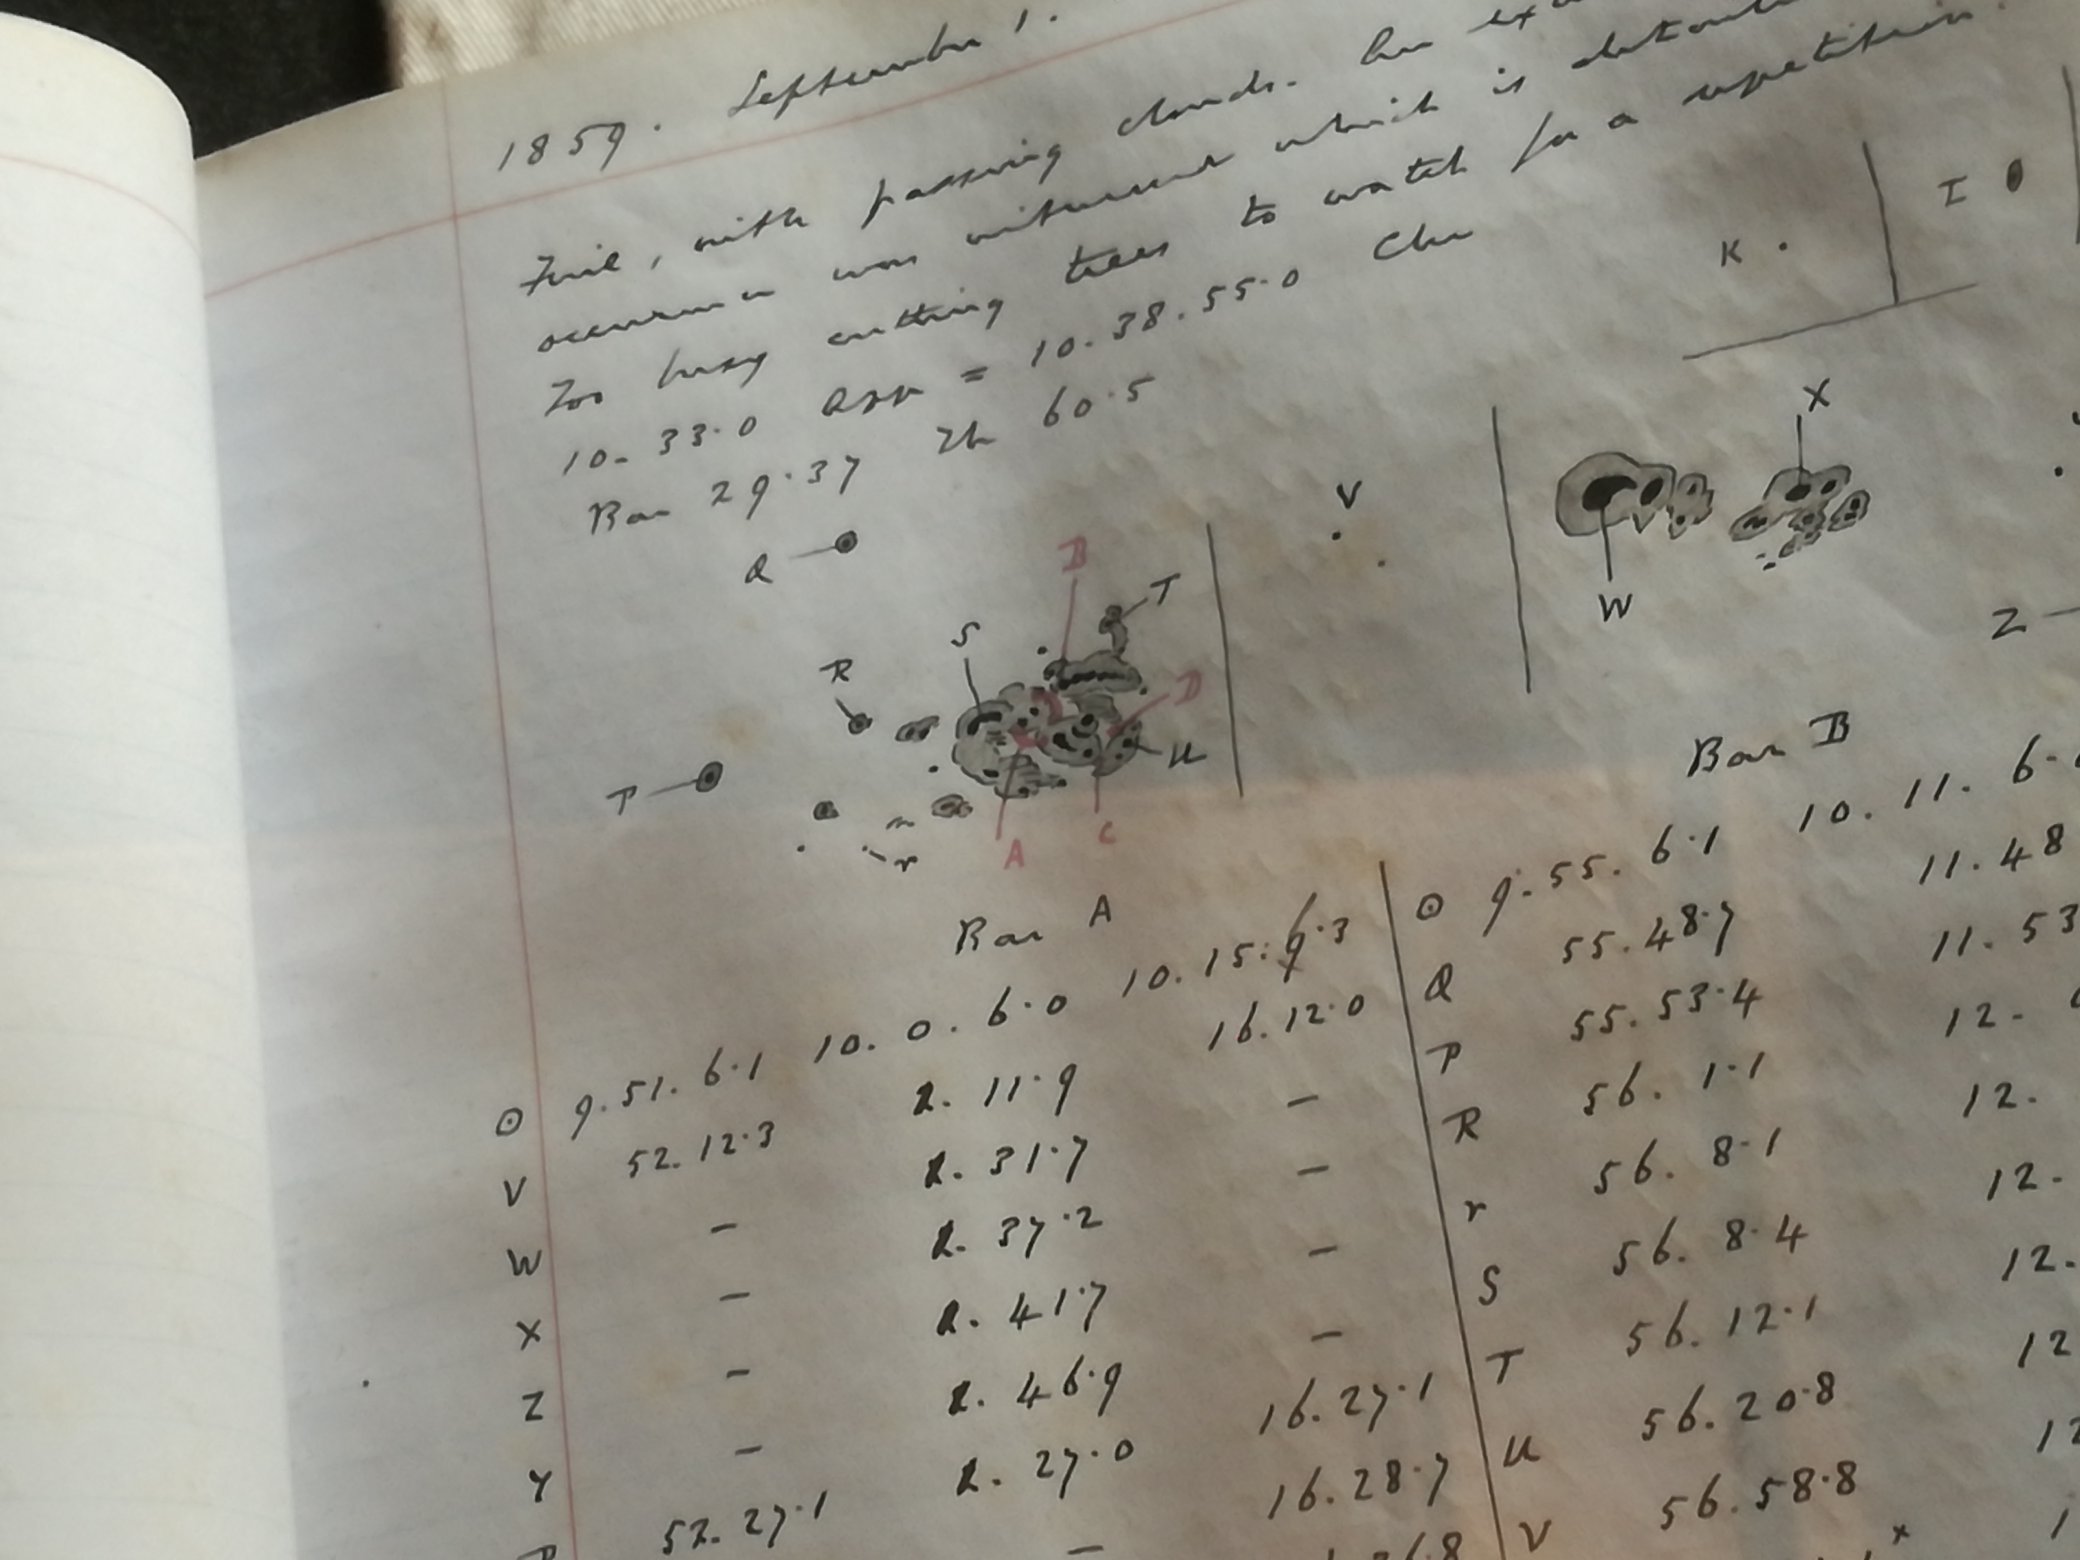 1859. September 1.
Fine, with passing clouds. An
occurrence was witnessed which is
Too busy cutting trees to watch for a repetition.
10. 33.0 = 10. 38. 55.0 Chr
Bar 29.37 Th 60.5
K
I
Q
V
X
W
Z
B
T
S
R
D
U
P
r
A
C
Bar A
⊙ 9. 51. 6.1 10. 0. 6.0 10. 15. 6.3
V 52. 12.3 2. 11.9 16. 12.0
W – 2. 31.7 –
X – 2. 37.2 –
Z – 2. 41.7 –
Y – 2. 46.9 –
P 52. 27.1 2. 27.0 16. 27.1
– 16. 28.7
Bar B
⊙ 9. 55. 6.1 10. 11. 6.
Q 55. 48.7 11. 48
P 55. 53.4 11. 53
R 56. 1.1 12.
r 56. 8.1 12.
S 56. 8.4 12.
T 56. 12.1 12.
U 56. 20.8 12
V 56. 58.8 12